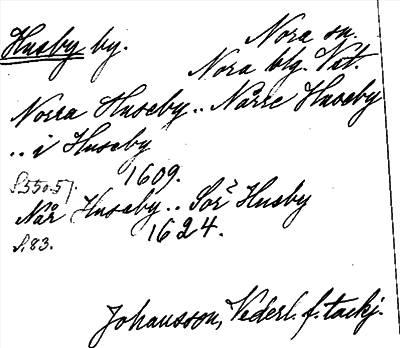 Husby by.
Nora sn.
Nora blg. Vst.
Norra Huseby.. Nårre Huseby
.. i Huseby
1609.
S.550.57.
Når Huseby.. Sör Husby
1624.
S.83.
Johansson, Vederl. f. tackj.